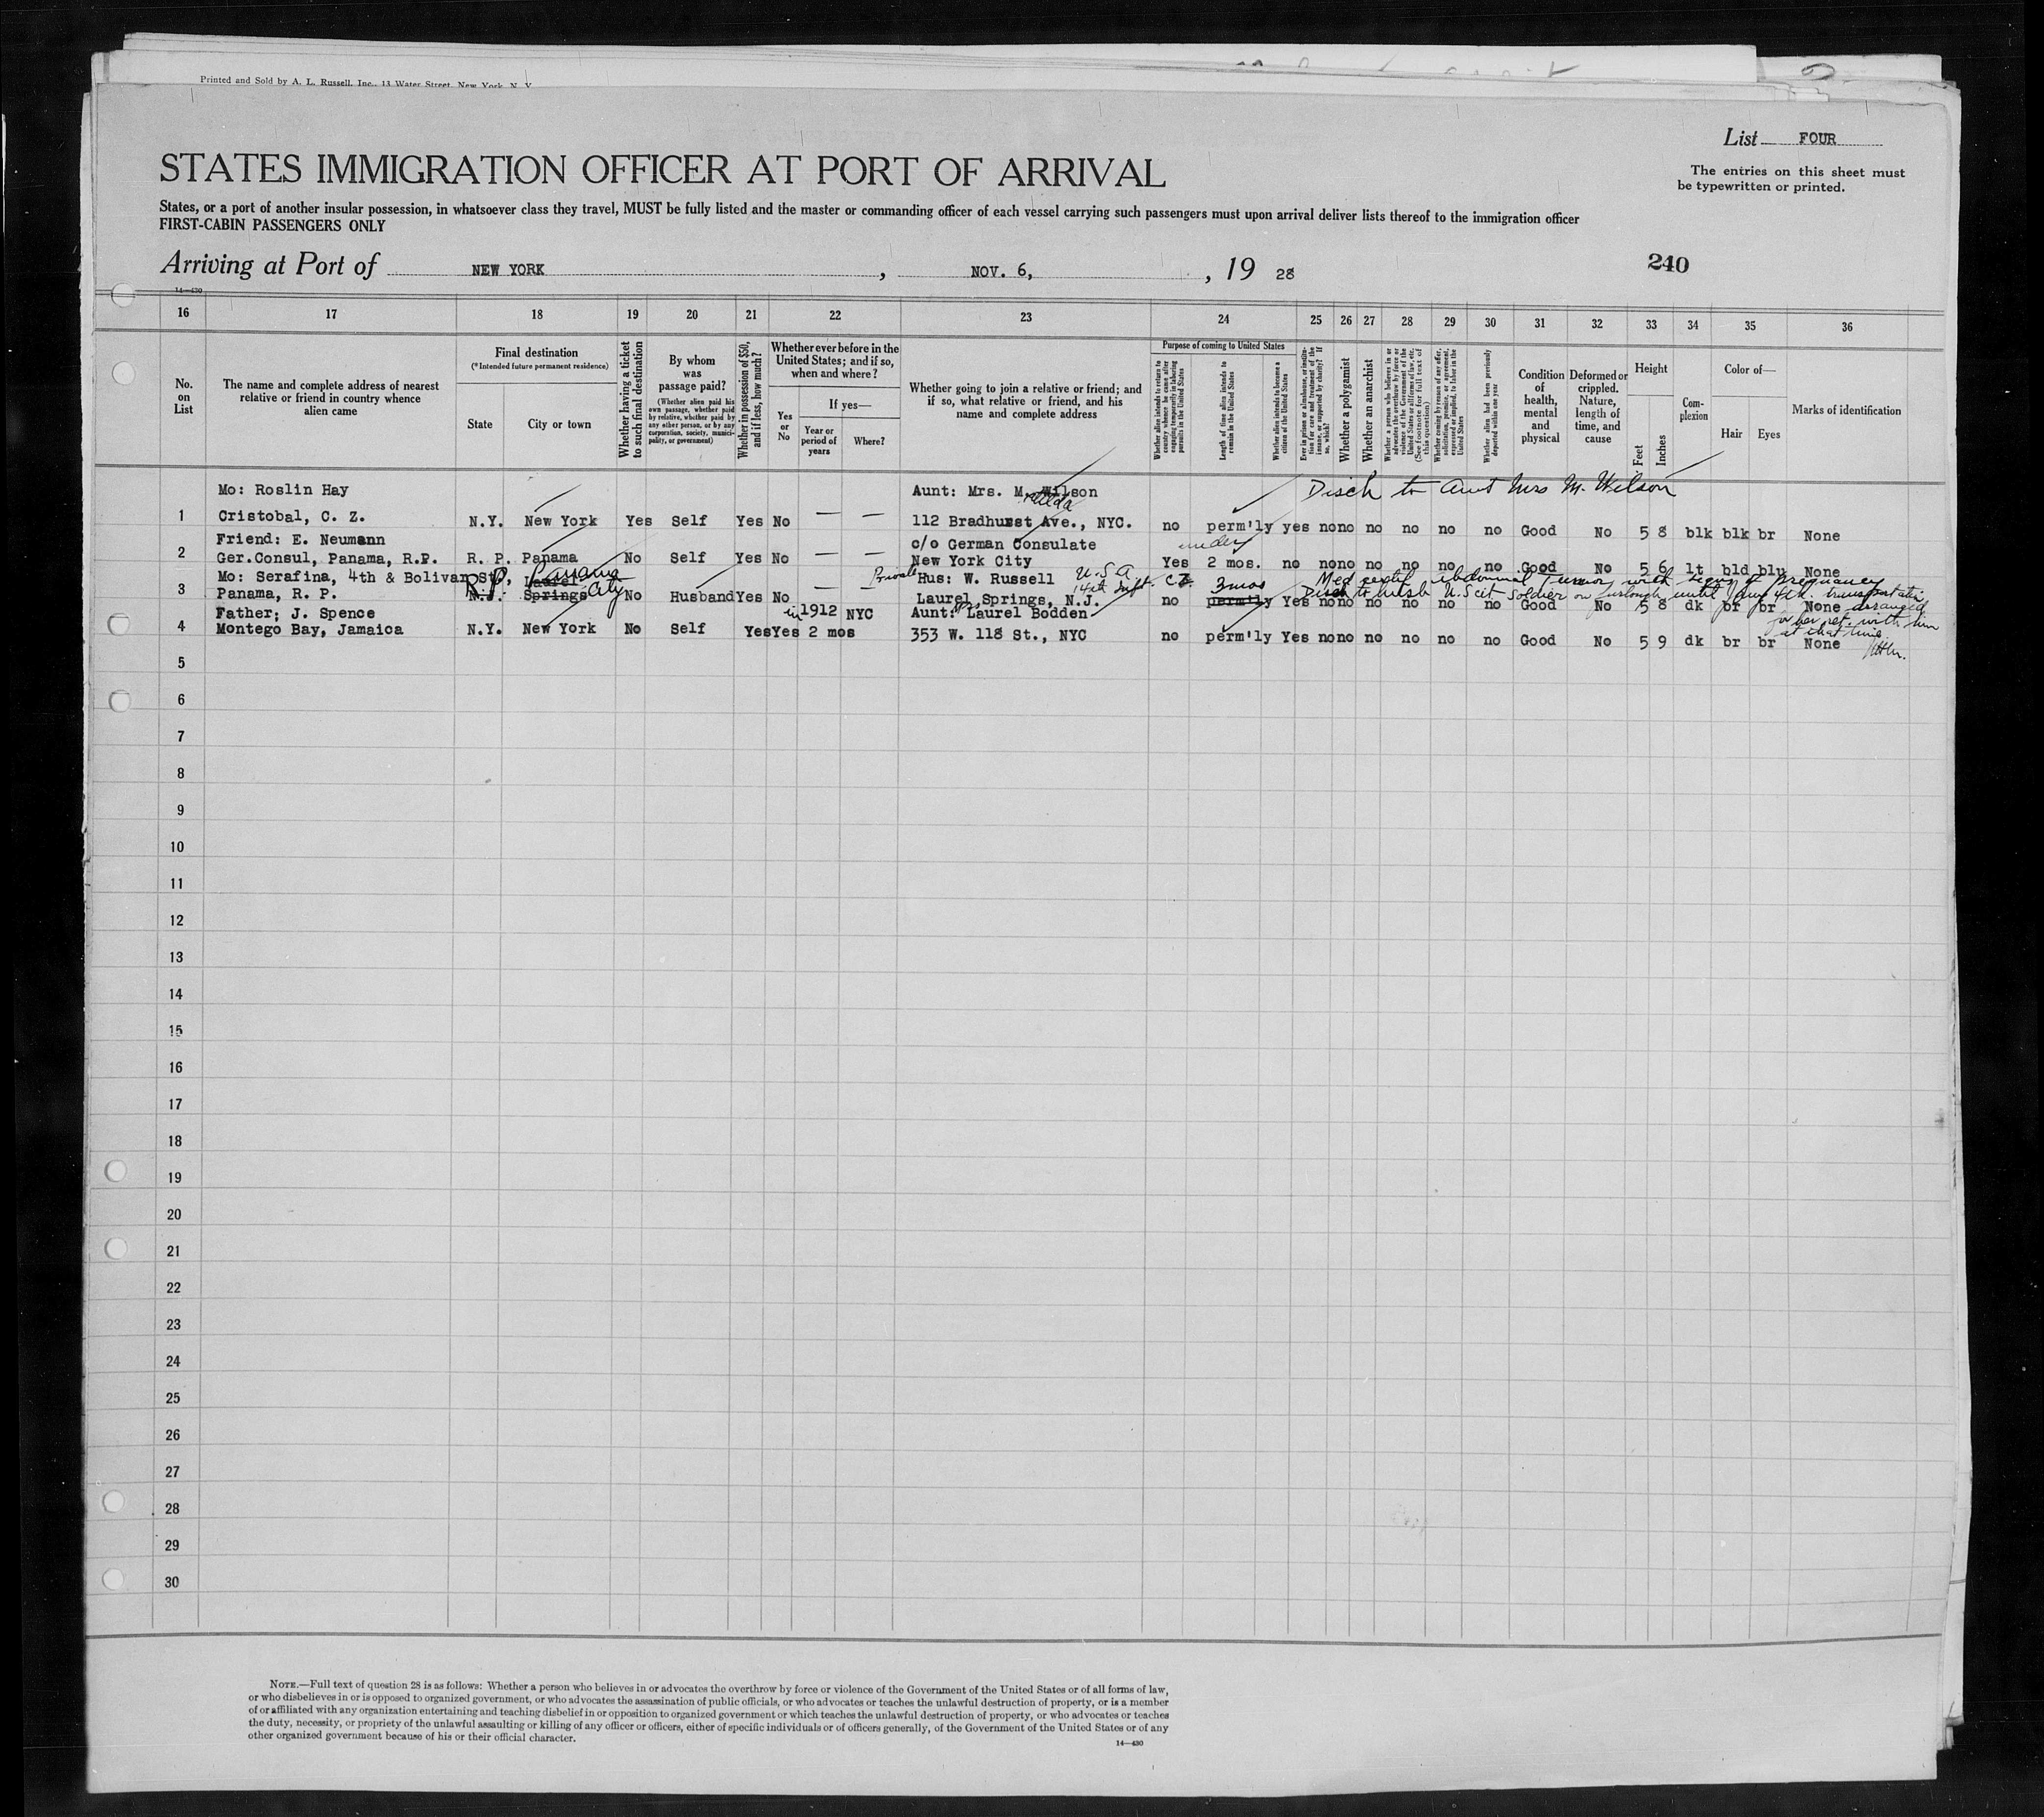 Printed and Sold by A. L. Russell, Inc., 13 Water Street, New York, N. Y.
List FOUR
The entries on this sheet must
be typewritten or printed.
STATES IMMIGRATION OFFICER AT PORT OF ARRIVAL
States, or a port of another insular possession, in whatsoever class they travel, MUST be fully listed and the master or commanding officer of each vessel carrying such passengers must upon arrival deliver lists thereof to the immigration officer
FIRST-CABIN PASSENGERS ONLY
Arriving at Port of NEW YORK, NOV. 6, , 19 28
240
14—430
16 17 18 19 20 21 22 23 24 25 26 27 28 29 30 31 32 33 34 35 36
No. on List
The name and complete address of nearest relative or friend in country whence alien came
Final destination
(*Intended future permanent residence)
State
City or town
Whether having a ticket to such final destination
By whom was passage paid?
(Whether alien paid his own passage, whether paid by relative, whether paid by any other person, or by any corporation, society, municipality, or government)
Whether in possession of $50, and if less, how much?
Whether ever before in the United States; and if so, when and where?
Yes or No
If yes—
Year or period of years
Where?
Whether going to join a relative or friend; and if so, what relative or friend, and his name and complete address
Purpose of coming to United States
Whether alien intends to return to country whence he came after engaging temporarily in laboring pursuits in the United States
Length of time alien intends to remain in the United States
Whether alien intends to become a citizen of the United States
Ever in prison or almshouse, or institution for care and treatment of the insane, or supported by charity? If so, which?
Whether a polygamist
Whether an anarchist
Whether a person who believes in or advocates the overthrow by force or violence of the Government of the United States or all forms of law, etc. (See footnote for full text of this question)
Whether coming by reason of any offer, solicitation, promise, or agreement, expressed or implied, to labor in the United States
Whether alien had been previously deported within one year
Condition of health, mental and physical
Deformed or crippled. Nature, length of time, and cause
Height
Feet
Inches
Complexion
Color of—
Hair
Eyes
Marks of identification
Mo: Roslin Hay Aunt: Mrs. M. Wilson Disch to Aunt Mrs M. Wilson
1 Cristobal, C. Z. N.Y. New York Yes Self Yes No — — 112 Bradhurst Ave., NYC. no perm'ly yes no no no no no no Good No 5 8 blk blk br None
Friend: E. Neumann c/o German Consulate under
2 Ger.Consul, Panama, R.P. R. P. Panama No Self Yes No — — New York City Yes 2 mos. no no no no no no no Good No 5 6 lt bld blu None
Mo: Serafina, 4th & Bolivar St., Laurel Panama Private Hus: W. Russell U.S.A. 14th Inft. C Z. 3 mos Med certif abdominal Tumor with signs of pregnancy
3 Panama, R. P. N.J. R.P. Springs City No Husband Yes No — — Laurel Springs, N.J. no perm'ly Yes no no no no no no Good No 5 8 dk br br None
Disch to husb U.S cit soldier on furlough until Jany 4th. transportatn arranged
for her ret. with him
at that time.
Father; J. Spence in 1912 NYC Aunt: Mrs Laurel Bodden
4 Montego Bay, Jamaica N.Y. New York No Self Yes Yes 2 mos 353 W. 118 St., NYC no perm'ly Yes no no no no no no Good No 5 9 dk br br None
5
6
7
8
9
10
11
12
13
14
15
16
17
18
19
20
21
22
23
24
25
26
27
28
29
30
NOTE.—Full text of question 28 is as follows: Whether a person who believes in or advocates the overthrow by force or violence of the Government of the United States or of all forms of law,
or who disbelieves in or is opposed to organized government, or who advocates the assassination of public officials, or who advocates or teaches the unlawful destruction of property, or is a member
of or affiliated with any organization entertaining and teaching disbelief in or opposition to organized government or which teaches the unlawful destruction of property, or who advocates or teaches
the duty, necessity, or propriety of the unlawful assaulting or killing of any officer or officers, either of specific individuals or of officers generally, of the Government of the United States or of any
other organized government because of his or their official character.
14—430